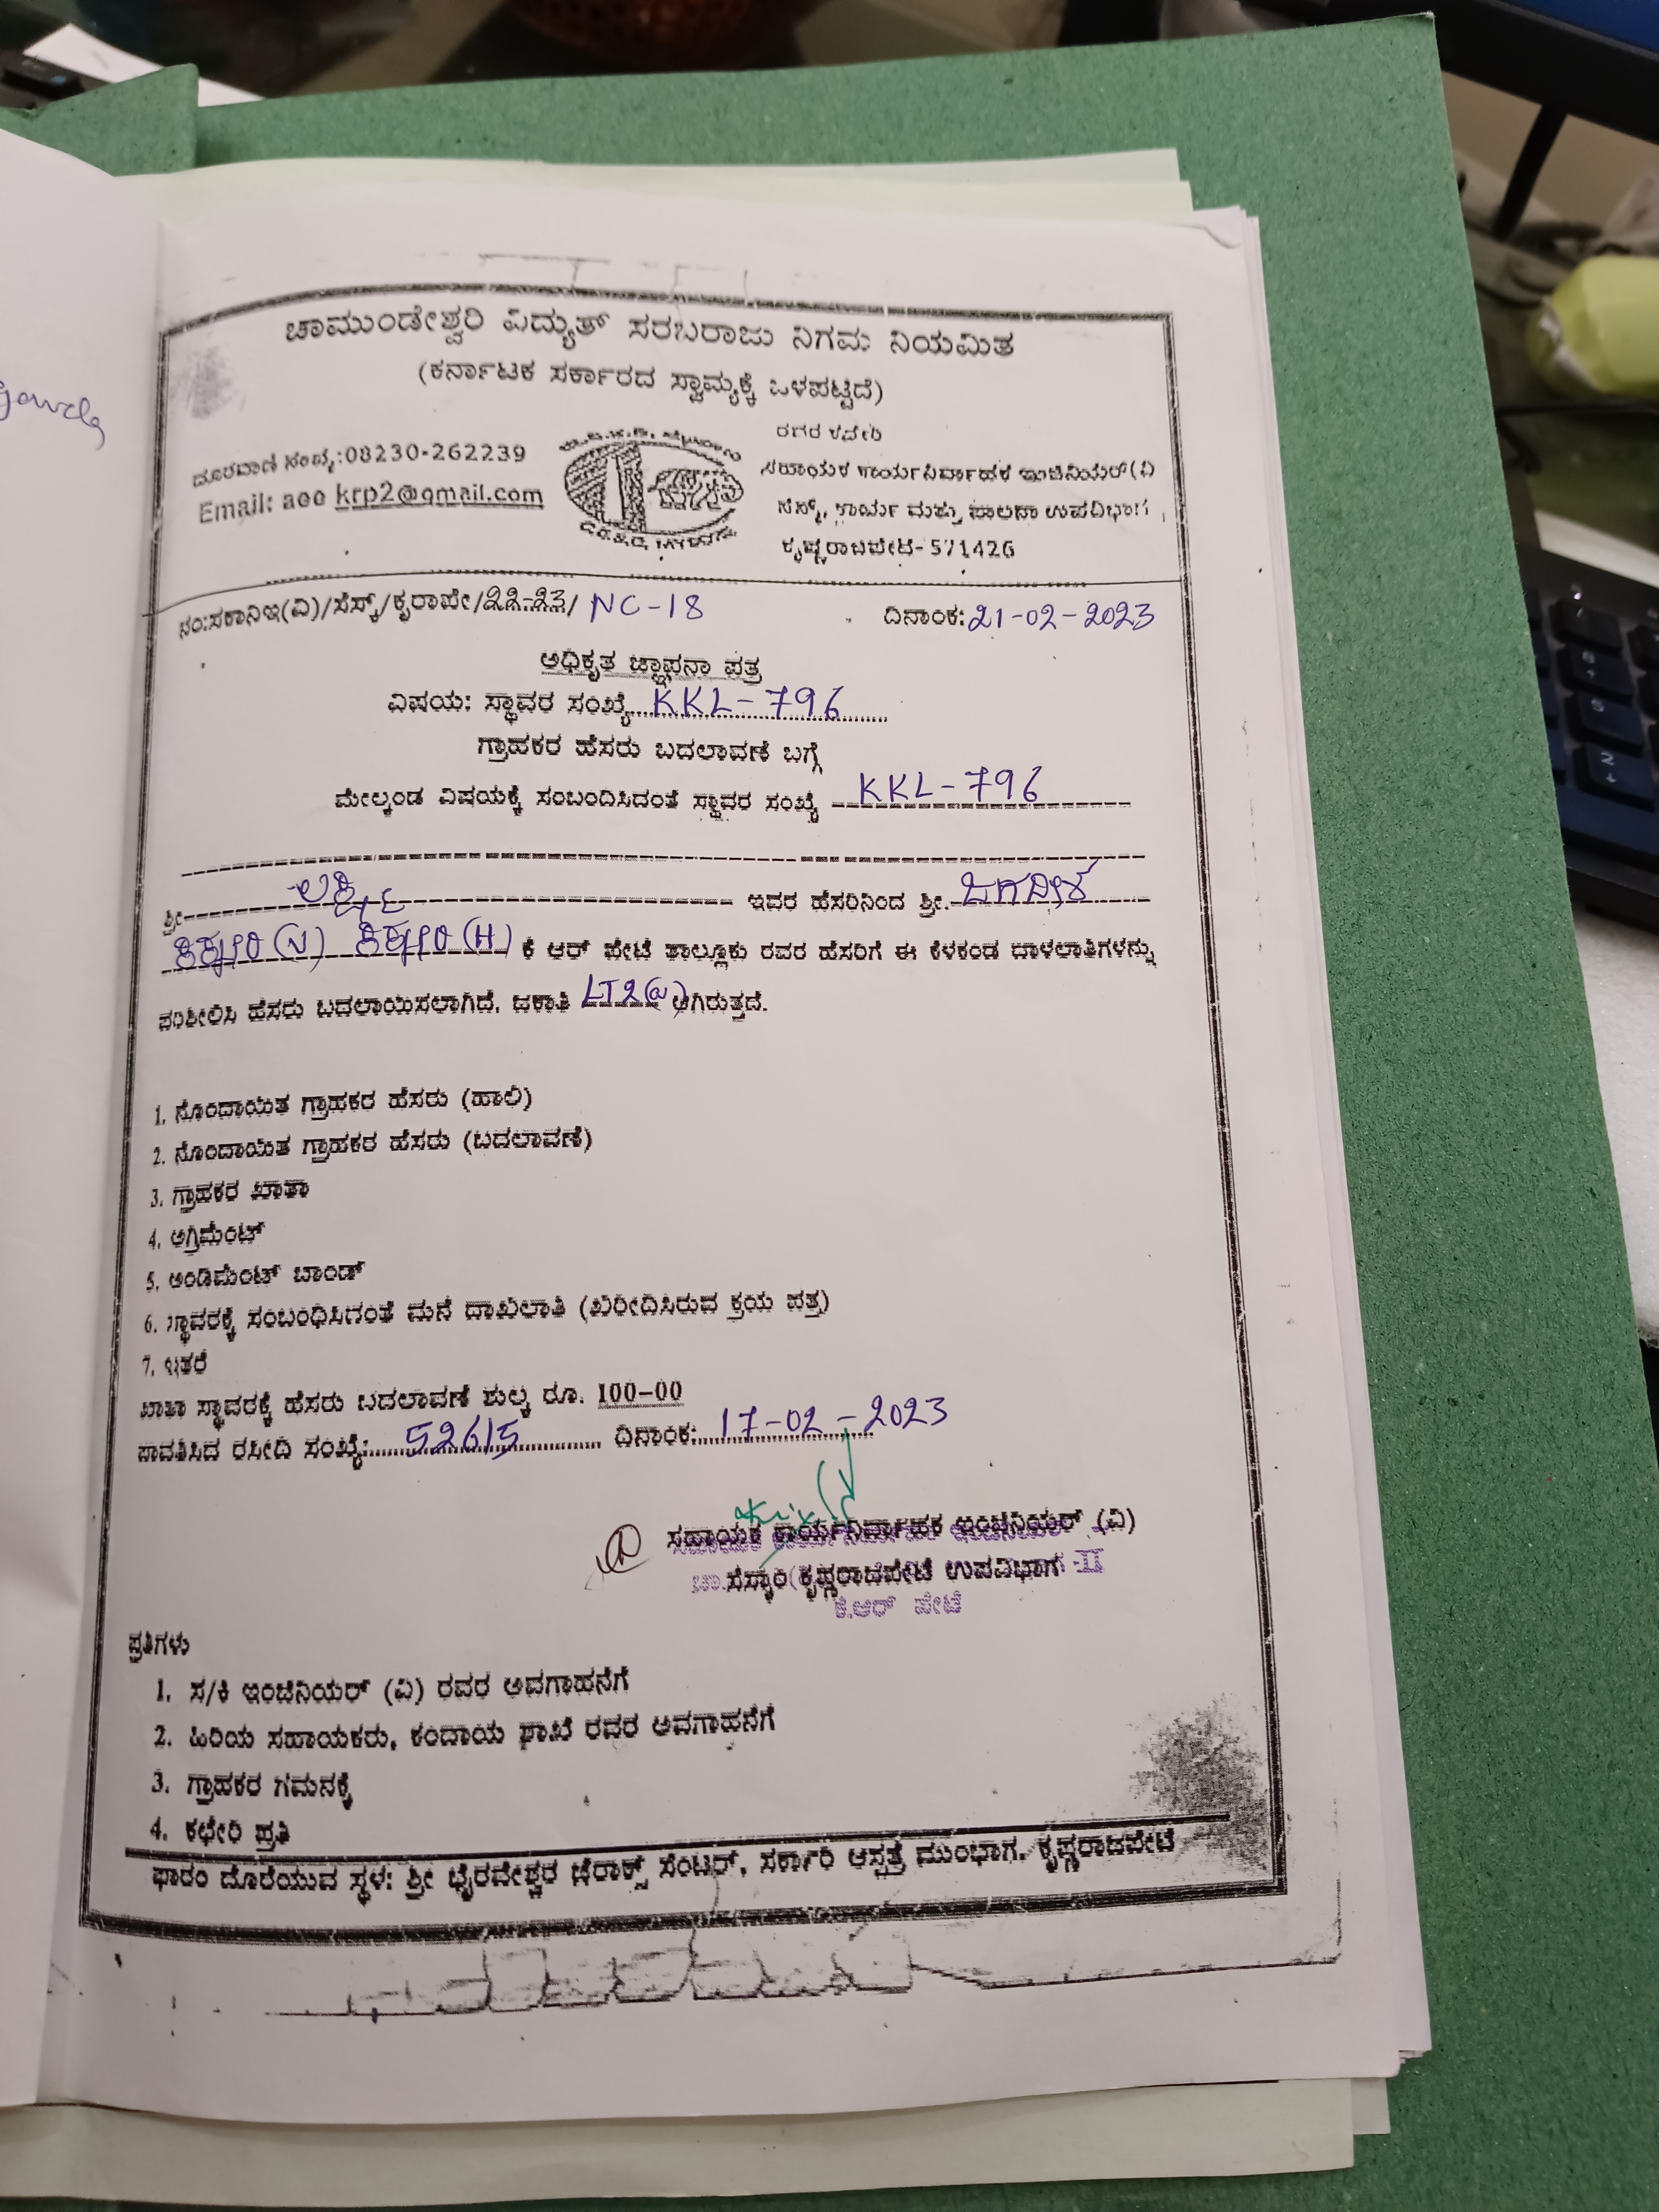 ಚಾಮುಂಡೇಶ್ವರಿ ವಿದ್ಯುತ್ ಸರಬರಾಜು ನಿಗಮ ನಿಯಮಿತ
(ಕರ್ನಾಟಕ ಸರ್ಕಾರದ ಸ್ವಾಮ್ಯಕ್ಕೆ ಒಳಪಟ್ಟಿದೆ)
ದೂರವಾಣಿ ಸಂಖ್ಯೆ:08230-262239
Email: aee krp2@gmail.com
ಸಹಾಯಕ ಕಾರ್ಯನಿರ್ವಾಹಕ ಇಂಜಿನಿಯರ್(ವಿ
ಸೆಸ್ಕ್, ಕಾರ್ಯ ಮತ್ತು ಪಾಲನಾ ಉಪವಿಭಾಗ,
ಕೃಷ್ಣರಾಜಪೇಟೆ-571426
ನಂ:ಸಕಾನಿಇ(ವಿ)/ಸೆಸ್ಕ್/ಕೃರಾಪೇ/22-23/ NC-18 ದಿನಾಂಕ:21-02-2023
ಅಧಿಕೃತ ಜ್ಞಾಪನಾ ಪತ್ರ
ವಿಷಯ: ಸ್ಥಾವರ ಸಂಖ್ಯೆ KKL-796
ಗ್ರಾಹಕರ ಹೆಸರು ಬದಲಾವಣೆ ಬಗ್ಗೆ
ಮೇಲ್ಕಂಡ ವಿಷಯಕ್ಕೆ ಸಂಬಂದಿಸಿದಂತೆ ಸ್ಥಾವರ ಸಂಖ್ಯೆ KKL-796
ಶ್ರೀ ಇವರ ಹೆಸರಿನಿಂದ ಶ್ರೀ. ಜಗದೀಶ
(V) (H) ಕೆ ಆರ್ ಪೇಟೆ ತಾಲ್ಲೂಕು ರವರ ಹೆಸರಿಗೆ ಈ ಕೆಳಕಂಡ ದಾಳಲಾತಿಗಳನ್ನು
ಪರಿಶೀಲಿಸಿ ಹೆಸರು ಬದಲಾಯಿಸಲಾಗಿದೆ. ಜಕಾತಿ LT2(a) ಆಗಿರುತ್ತದೆ.
1. ನೊಂದಾಯಿತ ಗ್ರಾಹಕರ ಹೆಸರು (ಹಾಲಿ)
2. ನೊಂದಾಯಿತ ಗ್ರಾಹಕರ ಹೆಸರು (ಬದಲಾವಣೆ)
3. ಗ್ರಾಹಕರ ಖಾತಾ
4. ಅಗ್ರಿಮೆಂಟ್
5. ಅಂಡಿಮೆಂಟ್ ಬಾಂಡ್
6. ಸ್ಥಾವರಕ್ಕೆ ಸಂಬಂಧಿಸಿಗಂತೆ ಮನೆ ದಾಖಲಾತಿ (ಖರೀದಿಸಿರುವ ಕ್ರಯ ಪತ್ರ)
7. ಇತರೆ
ಖಾತಾ ಸ್ಥಾವರಕ್ಕೆ ಹೆಸರು ಬದಲಾವಣೆ ಶುಲ್ಕ ರೂ. 100-00
ಪಾವತಿಸಿದ ರಸೀದಿ ಸಂಖ್ಯೆ: 52615 ದಿನಾಂಕ: 17-02-2023
ಸಹಾಯಕ ಕಾರ್ಯನಿರ್ವಾಹಕ ಇಂಜಿನಿಯರ್ (ವಿ)
ಸೆಸ್ಕಾಂ ಕೃಷ್ಣರಾಜಪೇಟೆ ಉಪವಿಭಾಗ -II
ಕೆ.ಆರ್ ಪೇಟೆ
ಪ್ರತಿಗಳು
1. ಸ/ಕಿ ಇಂಜಿನಿಯರ್ (ವಿ) ರವರ ಅವಗಾಹನೆಗೆ
2. ಹಿರಿಯ ಸಹಾಯಕರು, ಕಂದಾಯ ಶಾಖೆ ರವರ ಅವಗಾಹನೆಗೆ
3. ಗ್ರಾಹಕರ ಗಮನಕ್ಕೆ
4. ಕಛೇರಿ ಪ್ರತಿ
ಫಾರಂ ದೊರೆಯುವ ಸ್ಥಳ: ಶ್ರೀ ಭೈರವೇಶ್ವರ ಜೆರಾಕ್ಸ್ ಸೆಂಟರ್, ಸರ್ಕಾರಿ ಆಸ್ಪತ್ರೆ ಮುಂಭಾಗ, ಕೃಷ್ಣರಾಜಪೇಟೆ